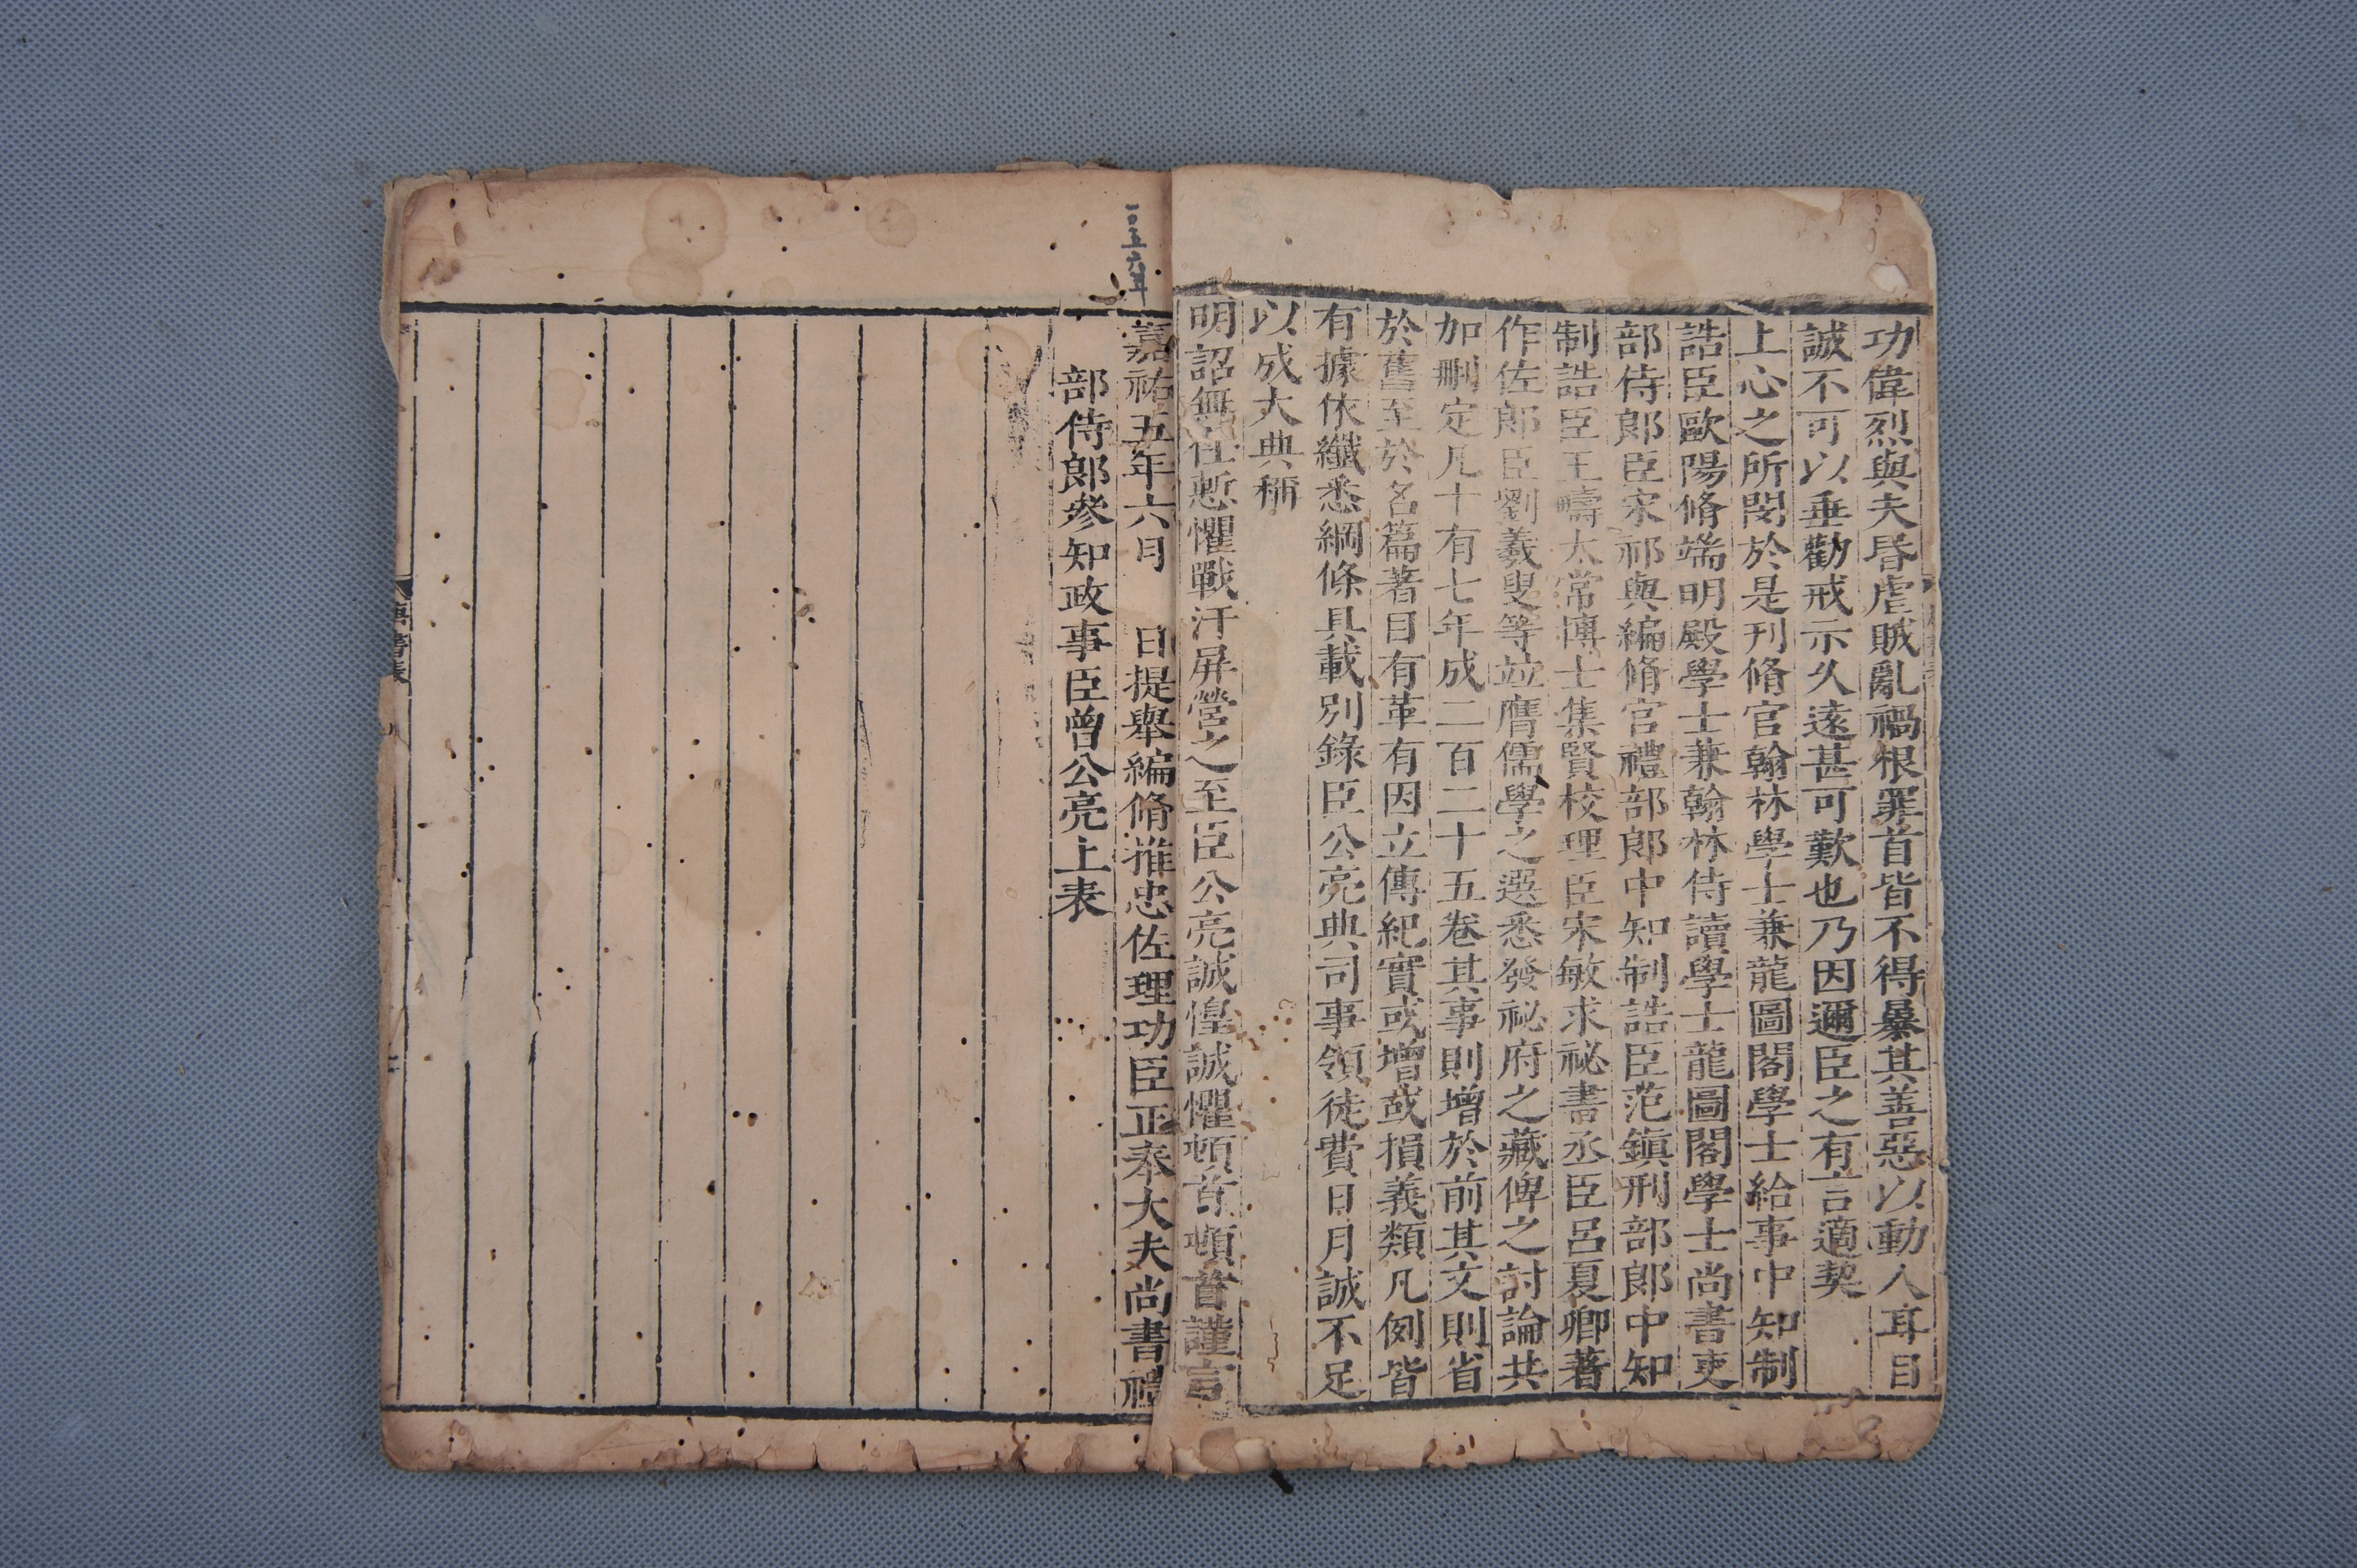 功偉烈與夫昏虐賊亂禍根罪首皆不得暴其善惡以動人耳目
誠不可以垂勸戒示久遠甚可歎也乃因邇臣之有言適契
上心之所閔於是刊脩官翰林學士兼龍圖閣學士給事中知制
誥臣歐陽脩端明殿學士兼翰林侍讀學士龍圖閣學士尚書吏
部侍郎臣宋祁與編脩官禮部郎中知制誥臣范鎮刑部郎中知
制誥臣王疇太常博士集賢校理臣宋敏求祕書丞臣呂夏卿著
作佐郎臣劉羲叟等竝膺儒學之選悉發祕府之藏俾之討論共
加刪定凡十有七年成二百二十五卷其事則增於前其文則省
於舊至於名篇著目有革有因立傳紀實或增或損義類凡例皆
有據依纖悉綱條具載別錄臣公亮典司事領徒費日月誠不足
以成大典稱
明詔無任慙懼戰汗屏營之至臣公亮誠惶誠懼頓首頓首謹言
一〇五六年
嘉祐五年六月 日提舉編脩推忠佐理功臣正奉大夫尚書禮
部侍郎參知政事臣曾公亮上表
唐書表